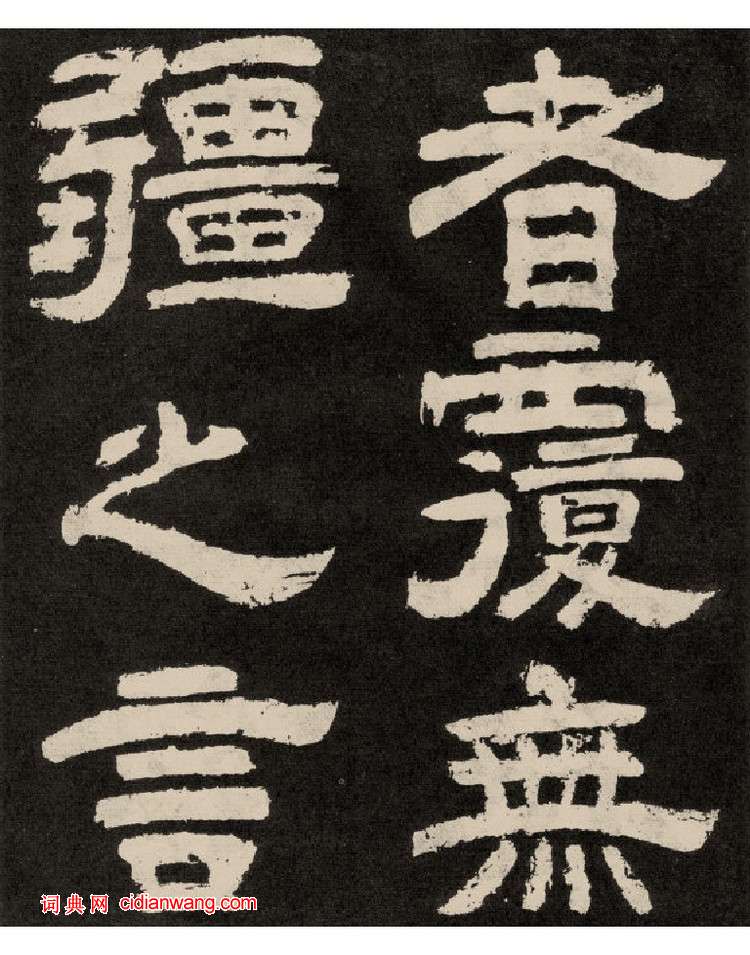 者覆無
疆之言
词典网 cidianwang.com